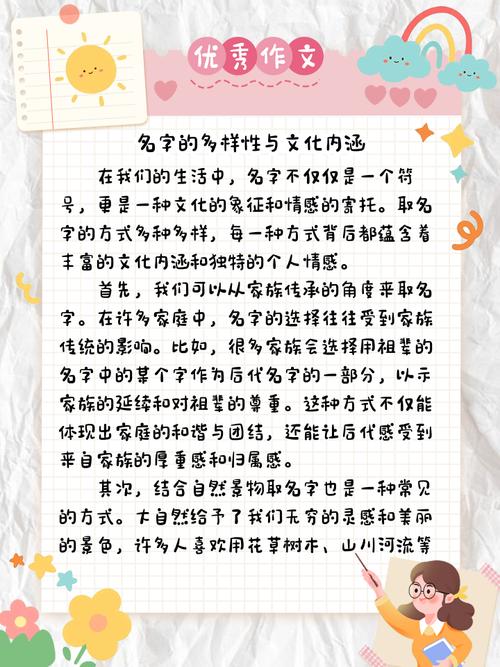 优秀作文
名字的多样性与文化内涵
在我们的生活中，名字不仅仅是一个符
号，更是一种文化的象征和情感的寄托。取名
字的方式多种多样，每一种方式背后都蕴含着
丰富的文化内涵和独特的个人情感。
首先，我们可以从家族传承的角度来取名
字。在许多家庭中，名字的选择往往受到家族
传统的影响。比如，很多家族会选择用祖辈的
名字中的某个字作为后代名字的一部分，以示
家族的延续和对祖辈的尊重。这种方式不仅能
体现出家庭的和谐与团结，还能让后代感受到
来自家族的厚重感和归属感。
其次，结合自然景物取名字也是一种常见
的方式。大自然给予了我们无穷的灵感和美丽
的景色，许多人喜欢用花草树木、山川河流等